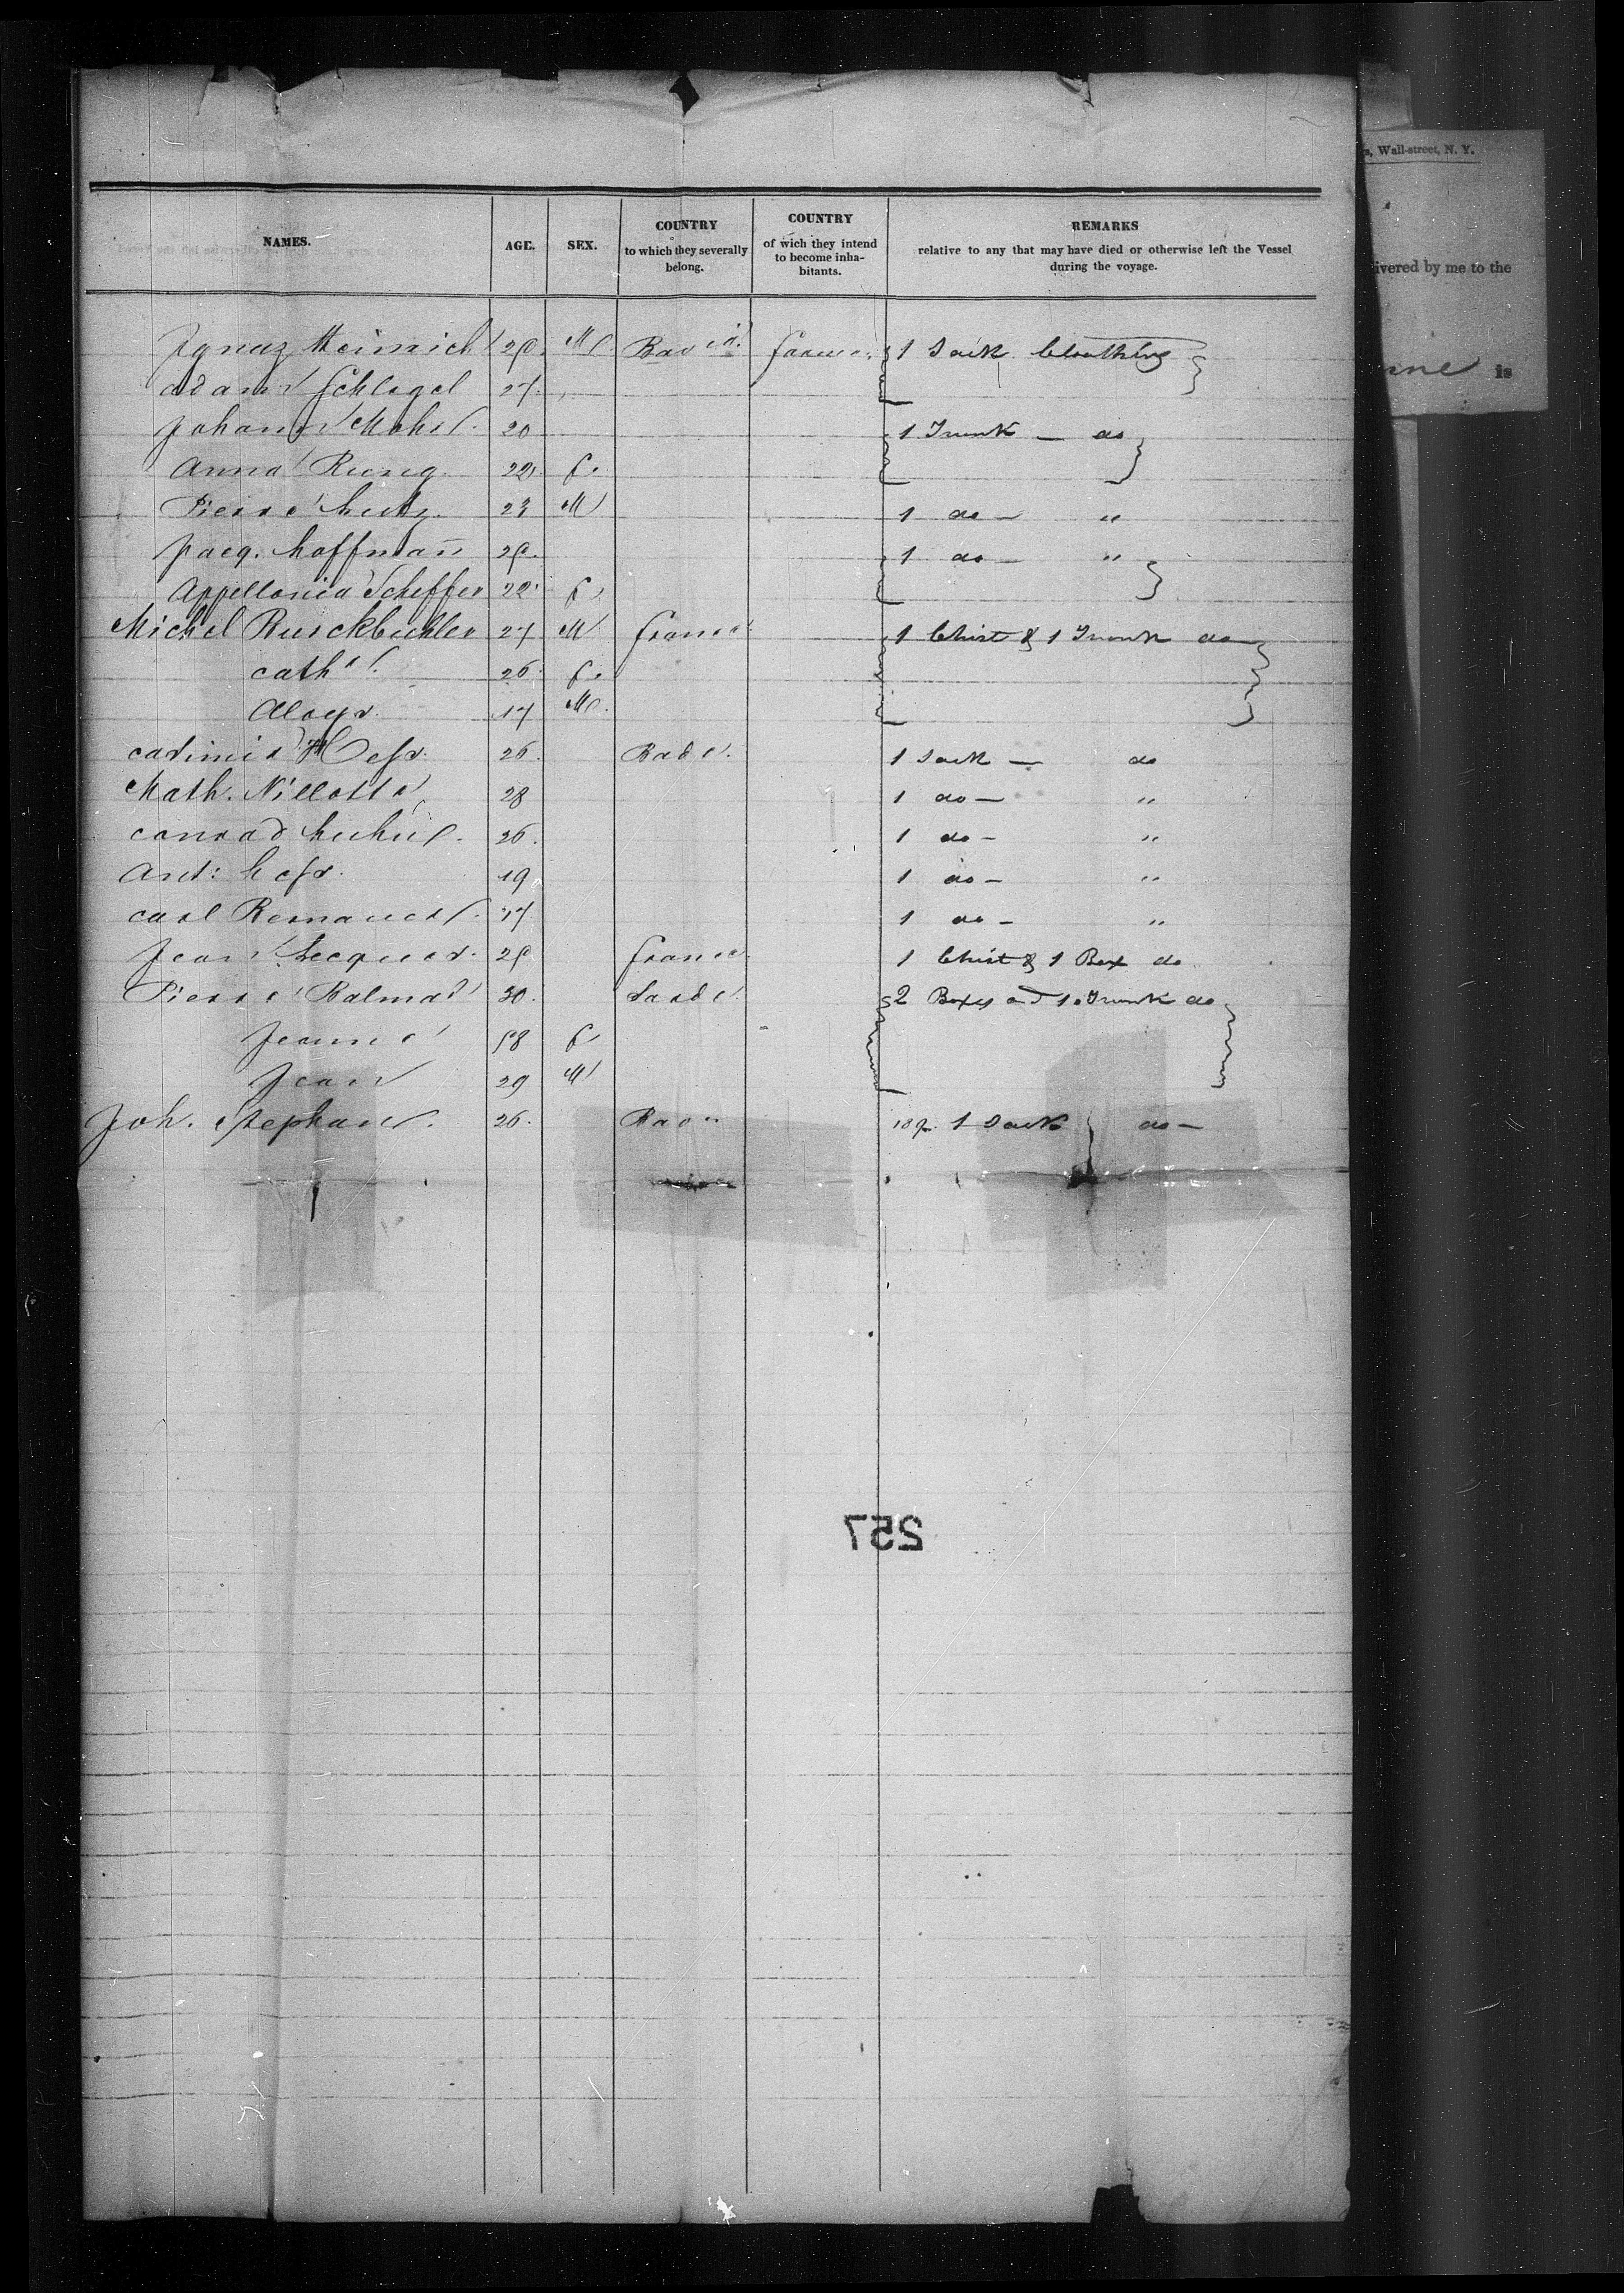 s, Wall-street, N. Y.
ivered by me to the
is
NAMES. AGE. SEX. COUNTRY to which they severally belong. COUNTRY of wich they intend to become inha-bitants. REMARKS relative to any that may have died or otherwise left the Vessel during the voyage.
Ignaz Heinrich M france 1 Sack Cloathing
Adam Schlegel 27
Johann 20 1 Trunk — do
Anna Rung 22 f.
Pierre 23 M 1 do — "
Jacq. hoffman̄ 1 do — "
Appellonia Scheffer 22 f
Michel Ruschbuhler 27 M france 1 Chist & 1 Trunk do
cath 26 f.
Aloys 17 M
casimir Hess 26 Bade 1 Sack — do
Math. 28 1 do — "
conrad 26 1 do — "
Ant: hess 19 1 do — "
carl 17 1 do — "
Jean Lecques france 1 Chist & 1 Box do
Pierre Balmad 30 Sarde 2 Boxes and 1 Trunk do
Jeanne 58 f
Jean 29 M
Joh. Stephan 26 Bav 1 Sack do —
257